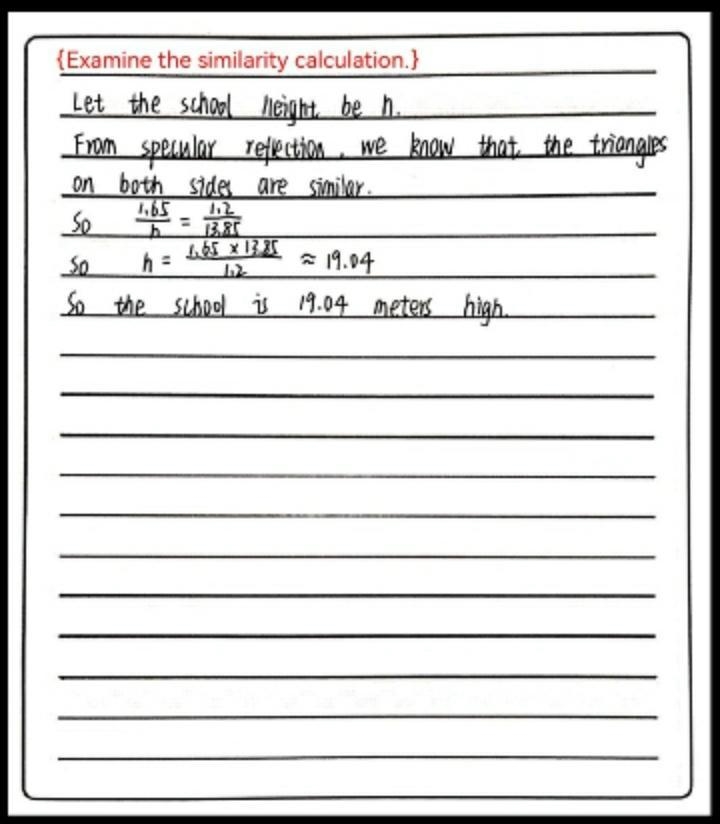 {Examine the similarity calculation.}
Let the school height be h.
From specular reflection, we know that the triangles
on both sides are similar.
So 1.65/h = 1.2/13.85
So h = 1.65 × 13.85/1.2 ≈ 19.04
So the school is 19.04 meters high.